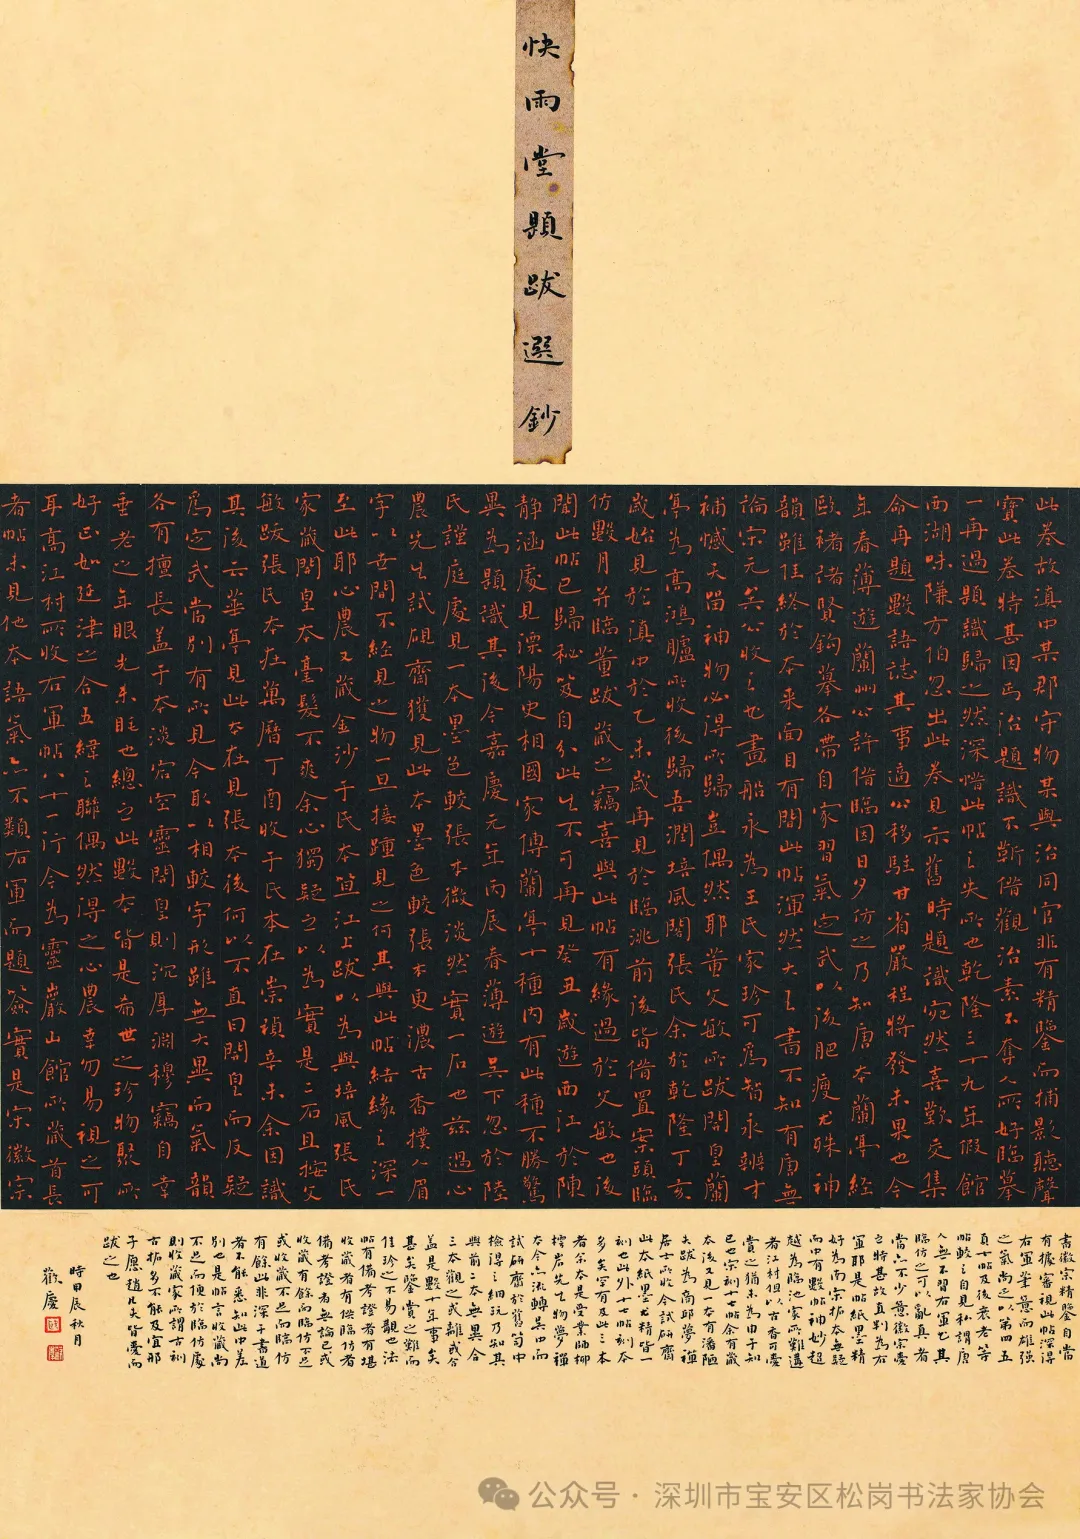 快雨堂題跋選鈔
此卷故滇中某郡守物某與治同官非有精鑒而捕影聽聲
寶此卷特甚因丐治題識不靳借觀治素不奪人所好臨摹
一再過題識歸之然深惜此帖之失所也乾隆三十九年假館
西湖味方伯忽出此卷見示舊時題識宛然喜歎交集
命再題數語誌其事適公移駐甘省嚴程將發未果也今
年春薄遊蘭州公許借臨因日夕仿之乃知唐本蘭亭經
歐褚諸賢鉤摹各帶自家習氣定武以後肥瘦尤殊神
韻雖佳終於本來面目有間此帖渾然大王書不知有唐無
論宋元矣公收之也畫船永為王氏家珍可為智永辨才
補憾天留神物必得所歸豈偶然耶董文敏所跋閣皇蘭
亭為高鴻臚所收後歸吾潤培風閣張氏余於乾隆丁亥
歲始見於滇中於乙未歲再見於臨洮前後皆借置案頭臨
仿數月并臨董跋藏之竊喜與此帖有緣過於文敏也後
聞此帖已歸秘笈自分此生不可再見癸丑歲遊西江於陳
靜涵處見溧陽史相國家傳蘭亭十種內有此種不勝驚
異為題識其後今嘉慶元年丙辰春薄遊吳下忽於陸
民謹庭處見一本墨色較張本微淡然實一石也茲過心
農先生試硯齋獲見此本墨色較張本更濃古香撲人眉
宇以世間不經見之物一旦接踵見之何其與此帖結緣之深一
至此耶心農又藏金沙于氏本笪江上跋以為與培風張氏
家藏閣皇本毫髮不爽余心獨疑之以為實是二石且按文
敏跋張氏本在萬曆丁酉收于氏本在崇禎辛未余因識
其後云華亭見此本在見張本後何以不直曰閣皇而反疑
為定武當別有所見今取以相較字形雖無大異而氣韻
各有擅長蓋于本淡宕空靈閣皇則沉厚淵穆竊自幸
垂老之年眼光未眊也總之此數本皆是希世之珍物聚所
好正如延津之合五緯之聯偶然得之心農幸勿易視之可
耳高江村所收右軍帖八十一行今為靈巖山館所藏首長
者帖未見他本語氣亦不類右軍而題簽實是宋徽宗
書徽宗精鑒自當
有據審視此帖深得
右軍筆意而雄強
之氣尚乏以第四五
頁十帖及後衰老等
帖較之自見私謂唐
人無不習右軍乞其
臨仿之可以亂真者
當亦不少意徽宗愛
之特甚故直判為右
軍耶是帖紙墨精
好為南宗拓本無疑
而中有數帖神妙超
越為臨池家所難遘
者江村但以古香可愛
賞之猶未為由于知
已也宗刻十七帖余有藏
本後又見一本有潘陋
夫跋為商邱夢禪
居士所收今試研齋
此本紙墨尤精皆一
刻也此外十七帖刻本
多矣罕有及此三本
者余本是受業師柳
樗岩先生物夢禪
本今亦流轉吳中而
試研齋於舊笥中
檢得之細玩乃知其
與前二本無異合
三本觀之或離或合
蓋是數十年事矣
甚矣鑒賞之難而
佳珍之不易覯也法
帖有備考證者有堪
收藏者有供臨仿者
備考證者無論已或
收藏有餘而臨仿不足
或收藏不足而臨仿
有餘此非深于書道
者不能悉知此中差
別也是帖言收藏尚
不足而便於臨仿處
則收藏家所謂古刻
古拓多不能及宜那
子愿趙凡夫皆愛而
跋之也
時甲辰秋月
歡慶
公众号 · 深圳市宝安区松岗书法家协会